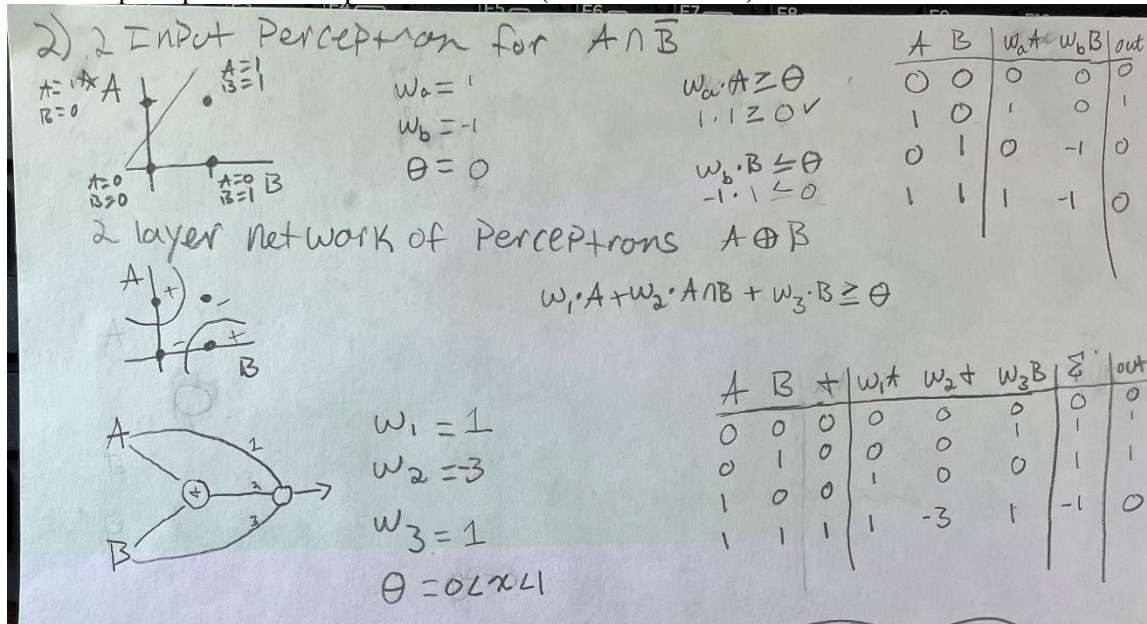 2) 2 Input Perceptron for A∩B̅
A=1
B=0
A
A=1
B=1
A=0
B=0
A=0
B=1
B
wₐ = 1
w_b = -1
θ = 0
wₐ·A ≥ θ
1·1 ≥ 0 ✓
w_b·B ≤ θ
-1·1 ≤ 0
A B wₐA w_bB out
0 0 0 0 0
1 0 1 0 1
0 1 0 -1 0
1 1 1 -1 0
2 layer network of Perceptrons A⊕B
A + -
- + B
w₁·A + w₂·A∩B + w₃·B ≥ θ
A
B
+
1
2
3
w₁ = 1
w₂ = -3
w₃ = 1
θ = 0<x<1
A B + w₁A w₂+ w₃B Σ out
0 0 0 0 0 0 0 0
0 1 0 0 0 1 1 1
1 0 0 1 0 0 1 1
1 1 1 1 -3 1 -1 0